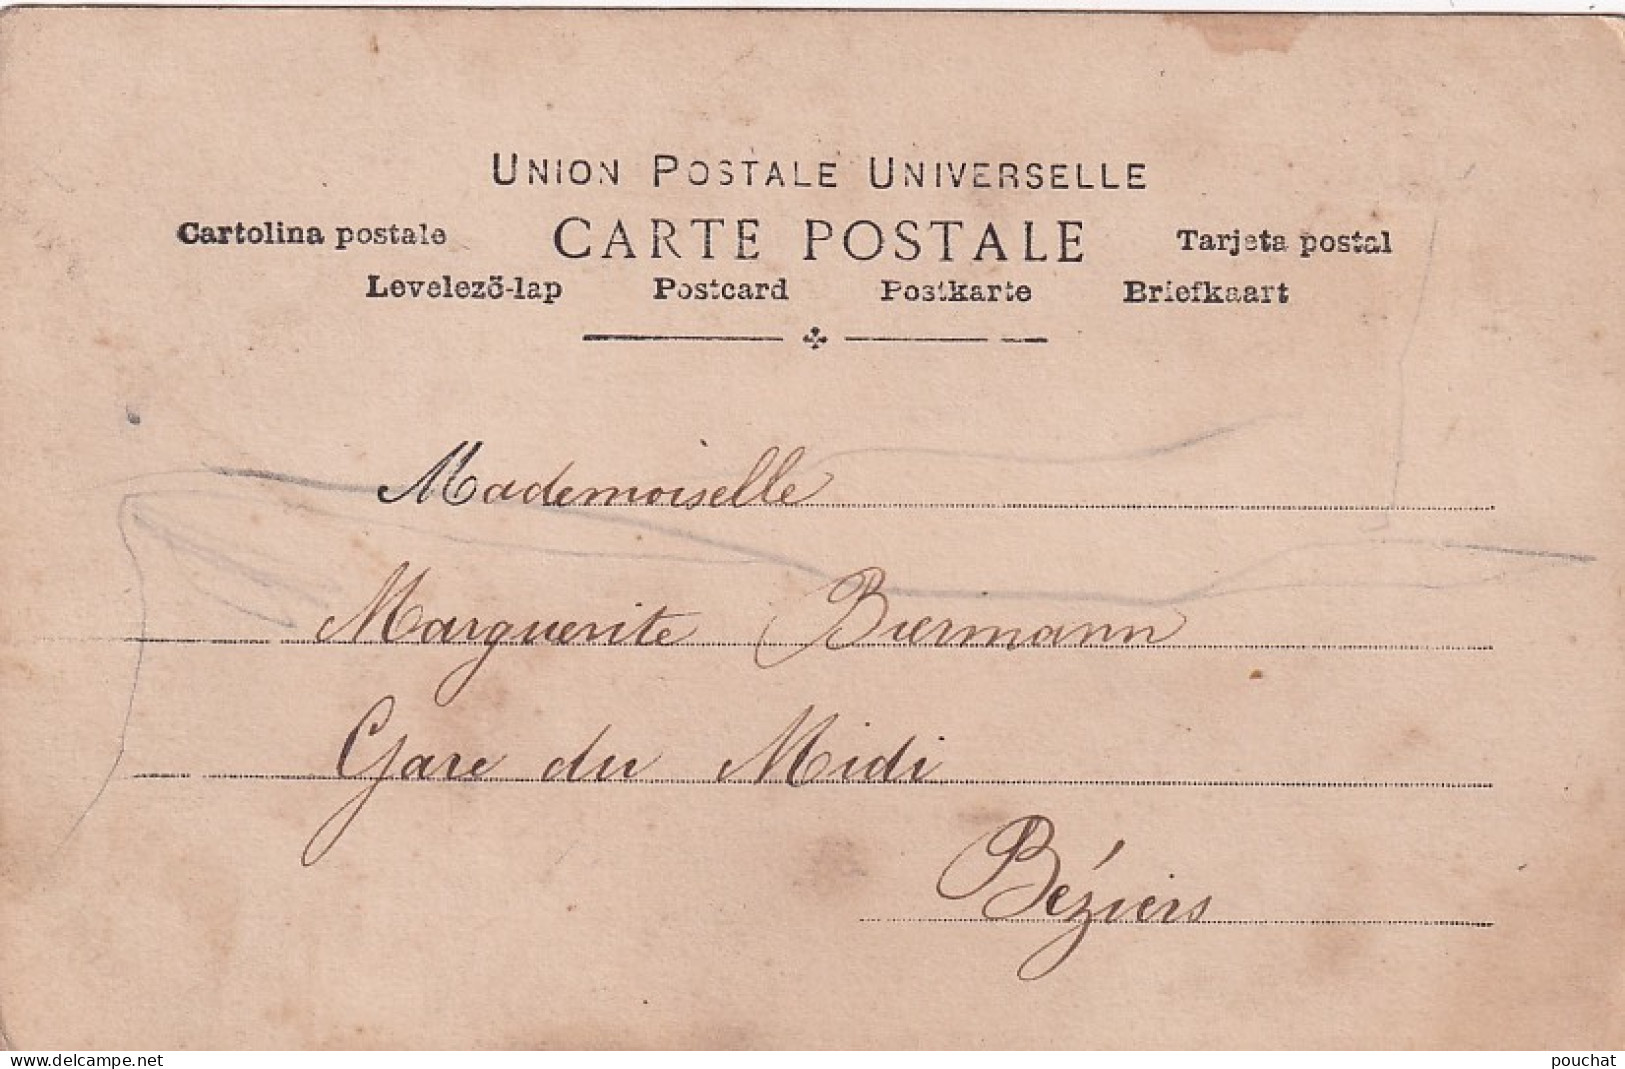 UNION POSTALE UNIVERSELLE
Cartolina postale CARTE POSTALE Tarjeta postal
Levelező-lap Postcard Postkarte Briefkaart
Mademoiselle
Marguerite Biermann
Gare du Midi
Béziers
www.delcampe.net pouchat